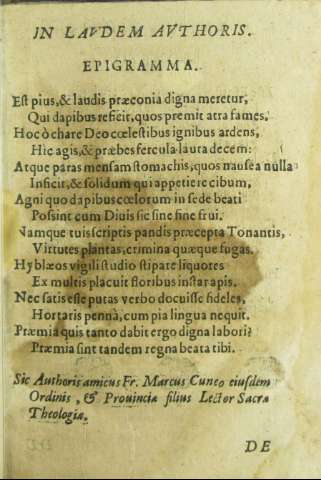 IN LAVDEM AVTHORIS.
EPIGRAMMA.
Est pius, & laudis præconia digna meretur,
Qui dapibus reficit, quos premit atra fames,
Hoc ò chare Deo cœlestibus ignibus ardens,
Hic agis, & præbes fercula lauta decem:
Atque paras mensam stomachis, quos nausea nulla
Inficit, & solidum qui appetiere cibum,
Agni quo dapibus cœlorum in sede beati
Possint cum Diuis sic sine fine frui.
Namque tuis scriptis pandis præcepta Tonantis,
Virtutes plantas, crimina quæque fugas.
Hyblæos vigili studio stipare liquores
Ex multis placuit floribus instar apis.
Nec satis esse putas verbo docuisse fideles,
Hortaris pennà, cum pia lingua nequit.
Præmia quis tanto dabit ergo digna labori?
Præmia sint tandem regna beata tibi.
Sic Authoris amicus Fr. Marcus Cuneo eiusdem
Ordinis, & Prouinciæ filius Lector Sacræ
Theologiæ.
DE